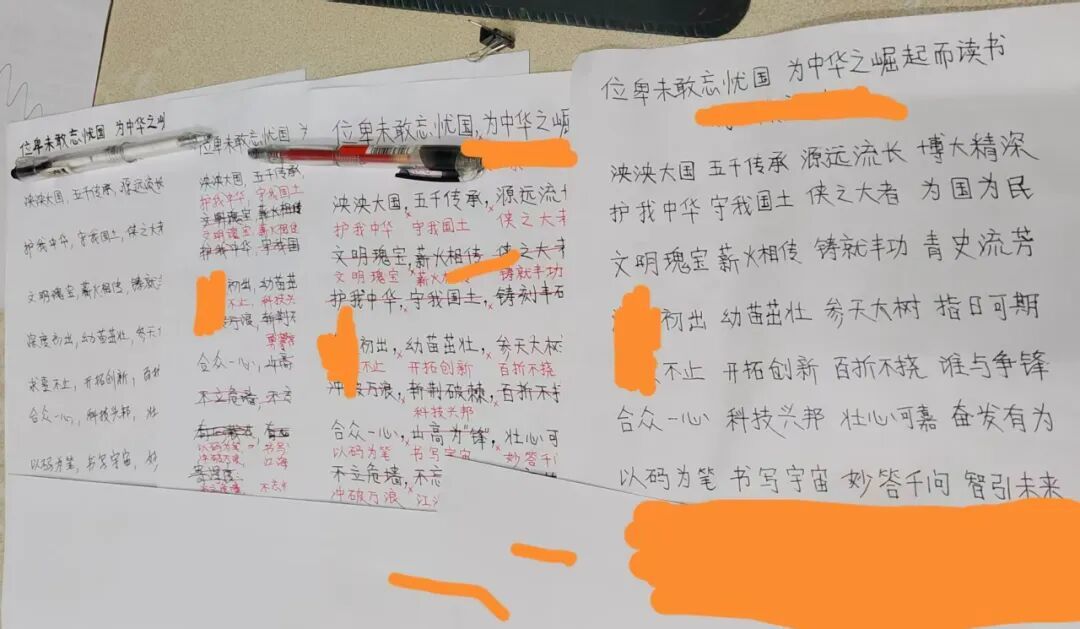 位卑未敢忘忧国 为中华之
泱泱大国,五千传承,源远流长
护我中华,守我国土,侠之大者
文明瑰宝,薪火相传,铸就
深度初出,幼苗茁壮,参天
求索不止,开拓创新,百折
合众一心,科技兴邦,壮
以码为笔,书写宇宙,妙
位卑未敢忘忧国
泱泱大国,五千传承,
护我中华,守我国土
文明瑰宝,薪火相传
文明瑰宝 薪火相传
护我中华,守我国
初出,幼苗茁
不止,科技兴
万浪,新荆
合众一心,
不立危墙,不忘
以码为笔 书写
冲破万浪, 江海
位卑未敢忘忧国,为中华之崛
泱泱大国,五千传承,源远流
护我中华 守我国土 侠之大者
文明瑰宝,薪火相传,侠之大者
文明瑰宝 薪火 铸就丰功
护我中华,守我国土,铸刻丰
初出,幼苗茁壮,参天大树
不止 开拓创新 百折不挠
冲破万浪,斩荆破棘,百折不
科技兴邦
合众一心,出高为"锋",壮心可
以码为笔 书写宇宙 妙答千
不立危墙,不忘
冲破万浪 江
位卑未敢忘忧国 为中华之崛起而读书
泱泱大国 五千传承 源远流长 博大精深
护我中华 守我国土 侠之大者 为国为民
文明瑰宝 薪火相传 铸就丰功 青史流芳
初出 幼苗茁壮 参天大树 指日可期
不止 开拓创新 百折不挠 谁与争锋
合众一心 科技兴邦 壮心可嘉 奋发有为
以码为笔 书写宇宙 妙答千问 智引未来